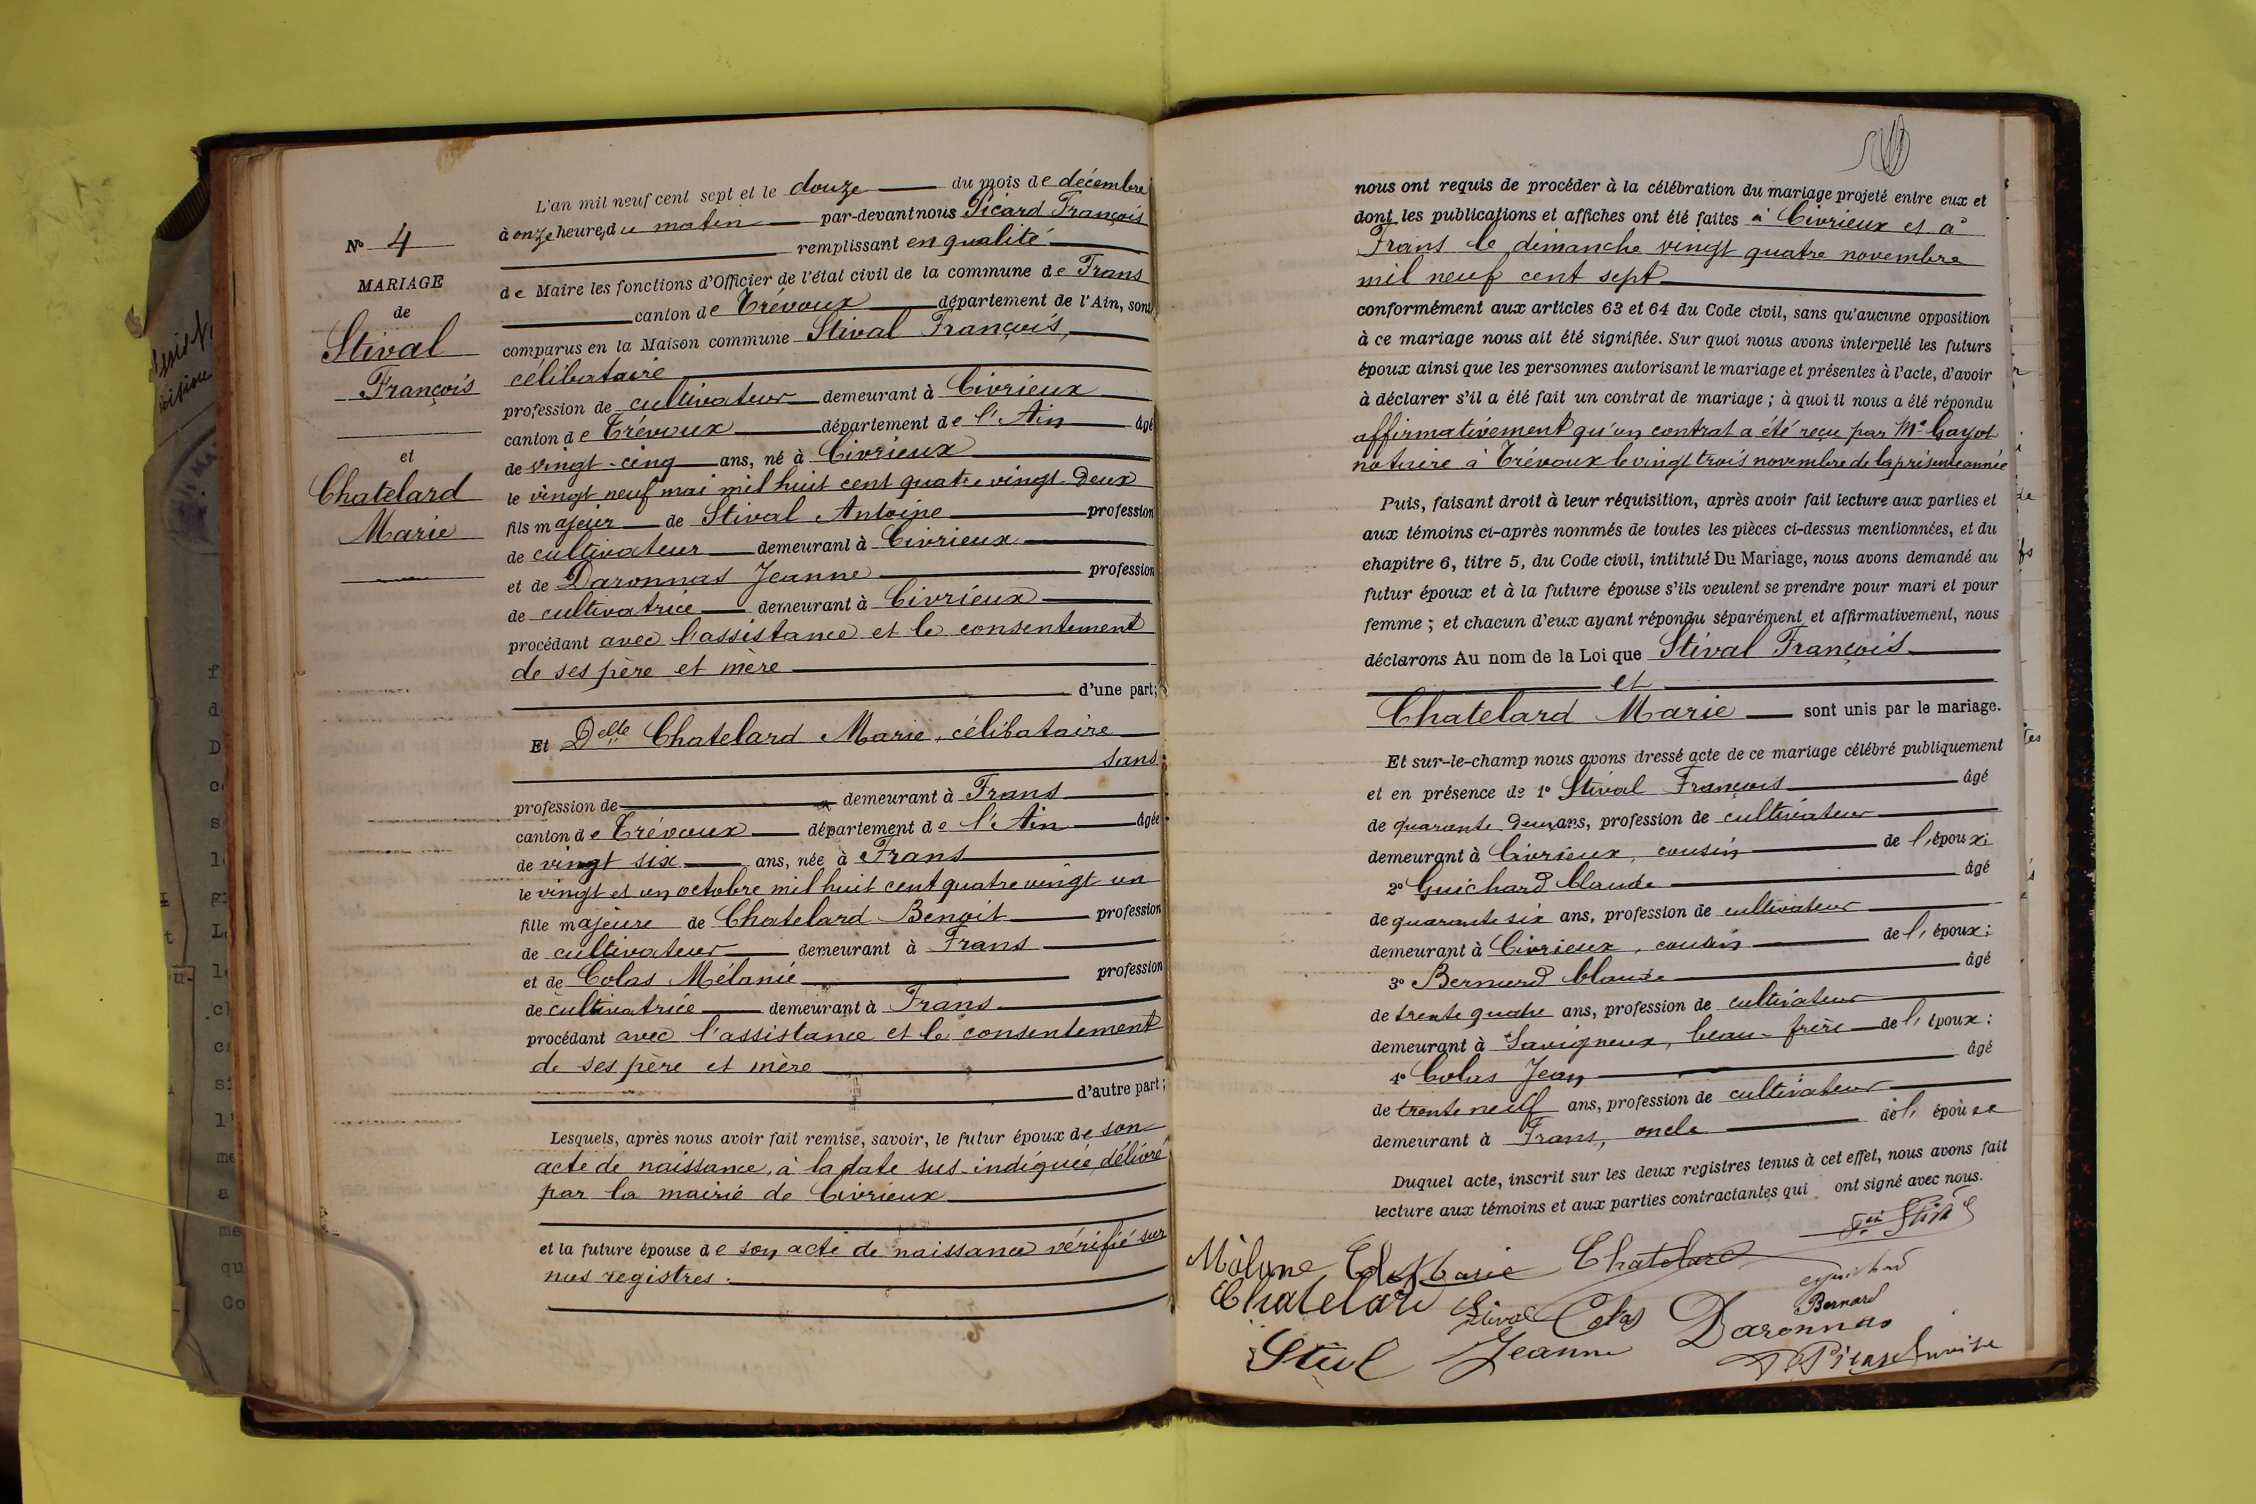 N° 4
MARIAGE
de
Stival
François
et
Chatelard
Marie
L'an mil neuf cent sept et le douze du mois de décembre
à onze heures du matin par-devant nous Picard François
remplissant en qualité
de Maire les fonctions d'Officier de l'état civil de la commune de Frans
canton de Trévoux département de l'Ain, sont
comparus en la Maison commune Stival François,
célibataire
profession de cultivateur demeurant à Civrieux
canton de Trévoux département de l'Ain âgé
de vingt-cinq ans, né à Civrieux
le vingt neuf mai mil huit cent quatre vingt deux
fils majeur de Stival Antoine profession
de cultivateur demeurant à Civrieux
et de Daronnas Jeanne profession
de cultivatrice demeurant à Civrieux
procédant avec l'assistance et le consentement
de ses père et mère
d'une part;
Et Delle Chatelard Marie, célibataire
sans
profession de demeurant à Frans
canton de Trévoux département de l'Ain âgée
de vingt six ans, née à Frans
le vingt et un octobre mil huit cent quatre vingt un
fille majeure de Chatelard Benoit profession
de cultivateur demeurant à Frans
et de Colas Mélanie profession
de cultivatrice demeurant à Frans
procédant avec l'assistance et le consentement
de ses père et mère
d'autre part;
Lesquels, après nous avoir fait remise, savoir, le futur époux de son
acte de naissance, à la date sus-indiquée, délivré
par la mairie de Civrieux
et la future épouse de son acte de naissance vérifié sur
nos registres.
nous ont requis de procéder à la célébration du mariage projeté entre eux et
dont les publications et affiches ont été faites à Civrieux et à
Frans le dimanche vingt quatre novembre
mil neuf cent sept
conformément aux articles 63 et 64 du Code civil, sans qu'aucune opposition
à ce mariage nous ait été signifiée. Sur quoi nous avons interpellé les futurs
époux ainsi que les personnes autorisant le mariage et présentes à l'acte, d'avoir
à déclarer s'il a été fait un contrat de mariage; à quoi il nous a été répondu
affirmativement qu'un contrat a été reçu par Me Gayot
notaire à Trévoux le vingt trois novembre de la présente année
Puis, faisant droit à leur réquisition, après avoir fait lecture aux parties et
aux témoins ci-après nommés de toutes les pièces ci-dessus mentionnées, et du
chapitre 6, titre 5, du Code civil, intitulé Du Mariage, nous avons demandé au
futur époux et à la future épouse s'ils veulent se prendre pour mari et pour
femme; et chacun d'eux ayant répondu séparément et affirmativement, nous
déclarons Au nom de la Loi que Stival François
et
Chatelard Marie sont unis par le mariage.
Et sur-le-champ nous avons dressé acte de ce mariage célébré publiquement
et en présence de 1° Stival François âgé
de quarante deux ans, profession de cultivateur
demeurant à Civrieux, cousin de l'époux;
2° Guichard Claude âgé
de quarante six ans, profession de cultivateur
demeurant à Civrieux, cousin de l'époux;
3° Bernard Claude âgé
de trente quatre ans, profession de cultivateur
demeurant à Savigneux, beau-frère de l'époux;
4° Colas Jean âgé
de trente neuf ans, profession de cultivateur
demeurant à Frans, oncle de l'épouse
Duquel acte, inscrit sur les deux registres tenus à cet effet, nous avons fait
lecture aux témoins et aux parties contractantes qui ont signé avec nous.
Marie Chatelard
Chatelard Stival Colas Daronnas
Bernard
Jeanne